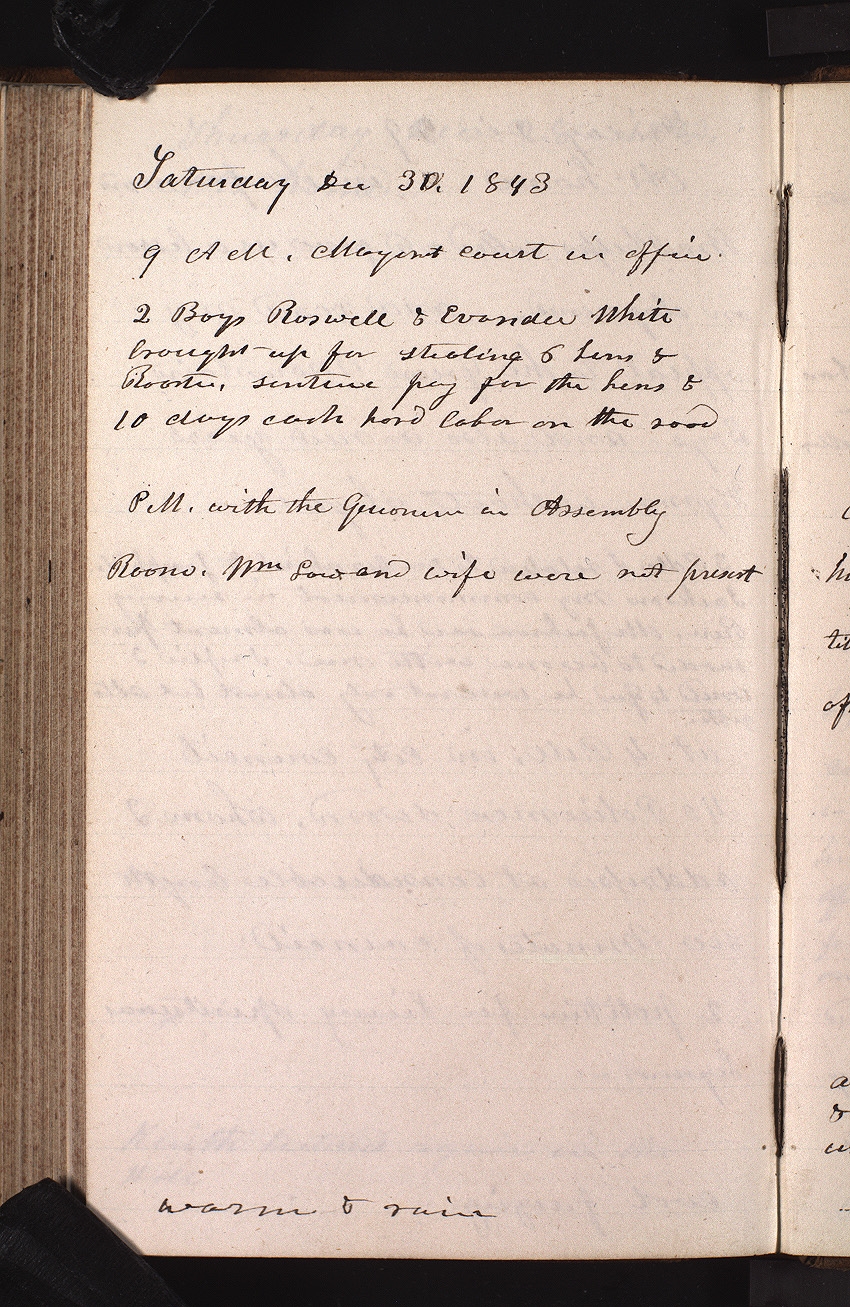 Saturday Dec 30. 1843
9 A M. Mayors court in office.
2 Boys Roswell & Evander White
brought up for stealing 6 hens &
Rooster. sentence pay for the hens &
10 days each hard labor on the road
P.M. with the Quorum in Assembly
Room. Wm Law and wife were not present
warm & rain